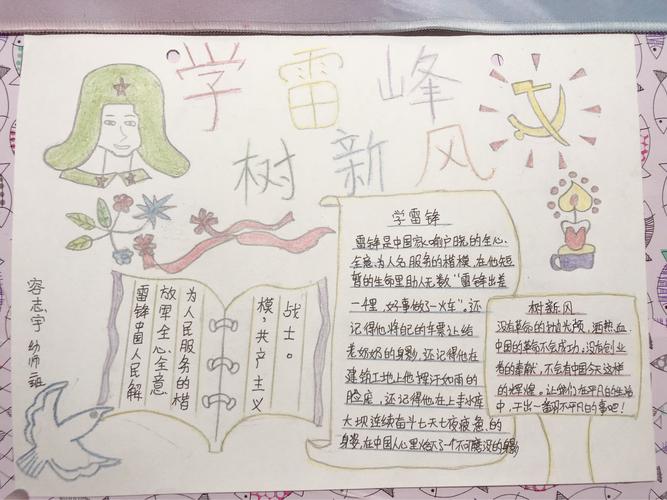 学雷峰
树新风
容志宇 幼师二班
雷锋中国人民解
放军全心全意
为人民服务的楷
模,共产主义
战士。
学雷锋
雷锋是中国家喻户晓的全心
全意为人名服务的楷模,在他短
暂的生命里助人无数“雷锋出差
一程,好事做了一火车”,还
记得他将自己的车票让给
老奶奶的身影,还记得他在
建筑工地上他挥汗如雨的
脸庞,还记得他在上丰水库
大坝连续奋斗七天七夜疲惫的
身姿,在中国人心里
树新风
没有革命的抛头颅,洒热血,
中国的革命不会成功,没有创业
者的奉献,不会有中国今天这样
的辉煌。让我们在平凡的生活
中,干出一番不平凡的事吧!